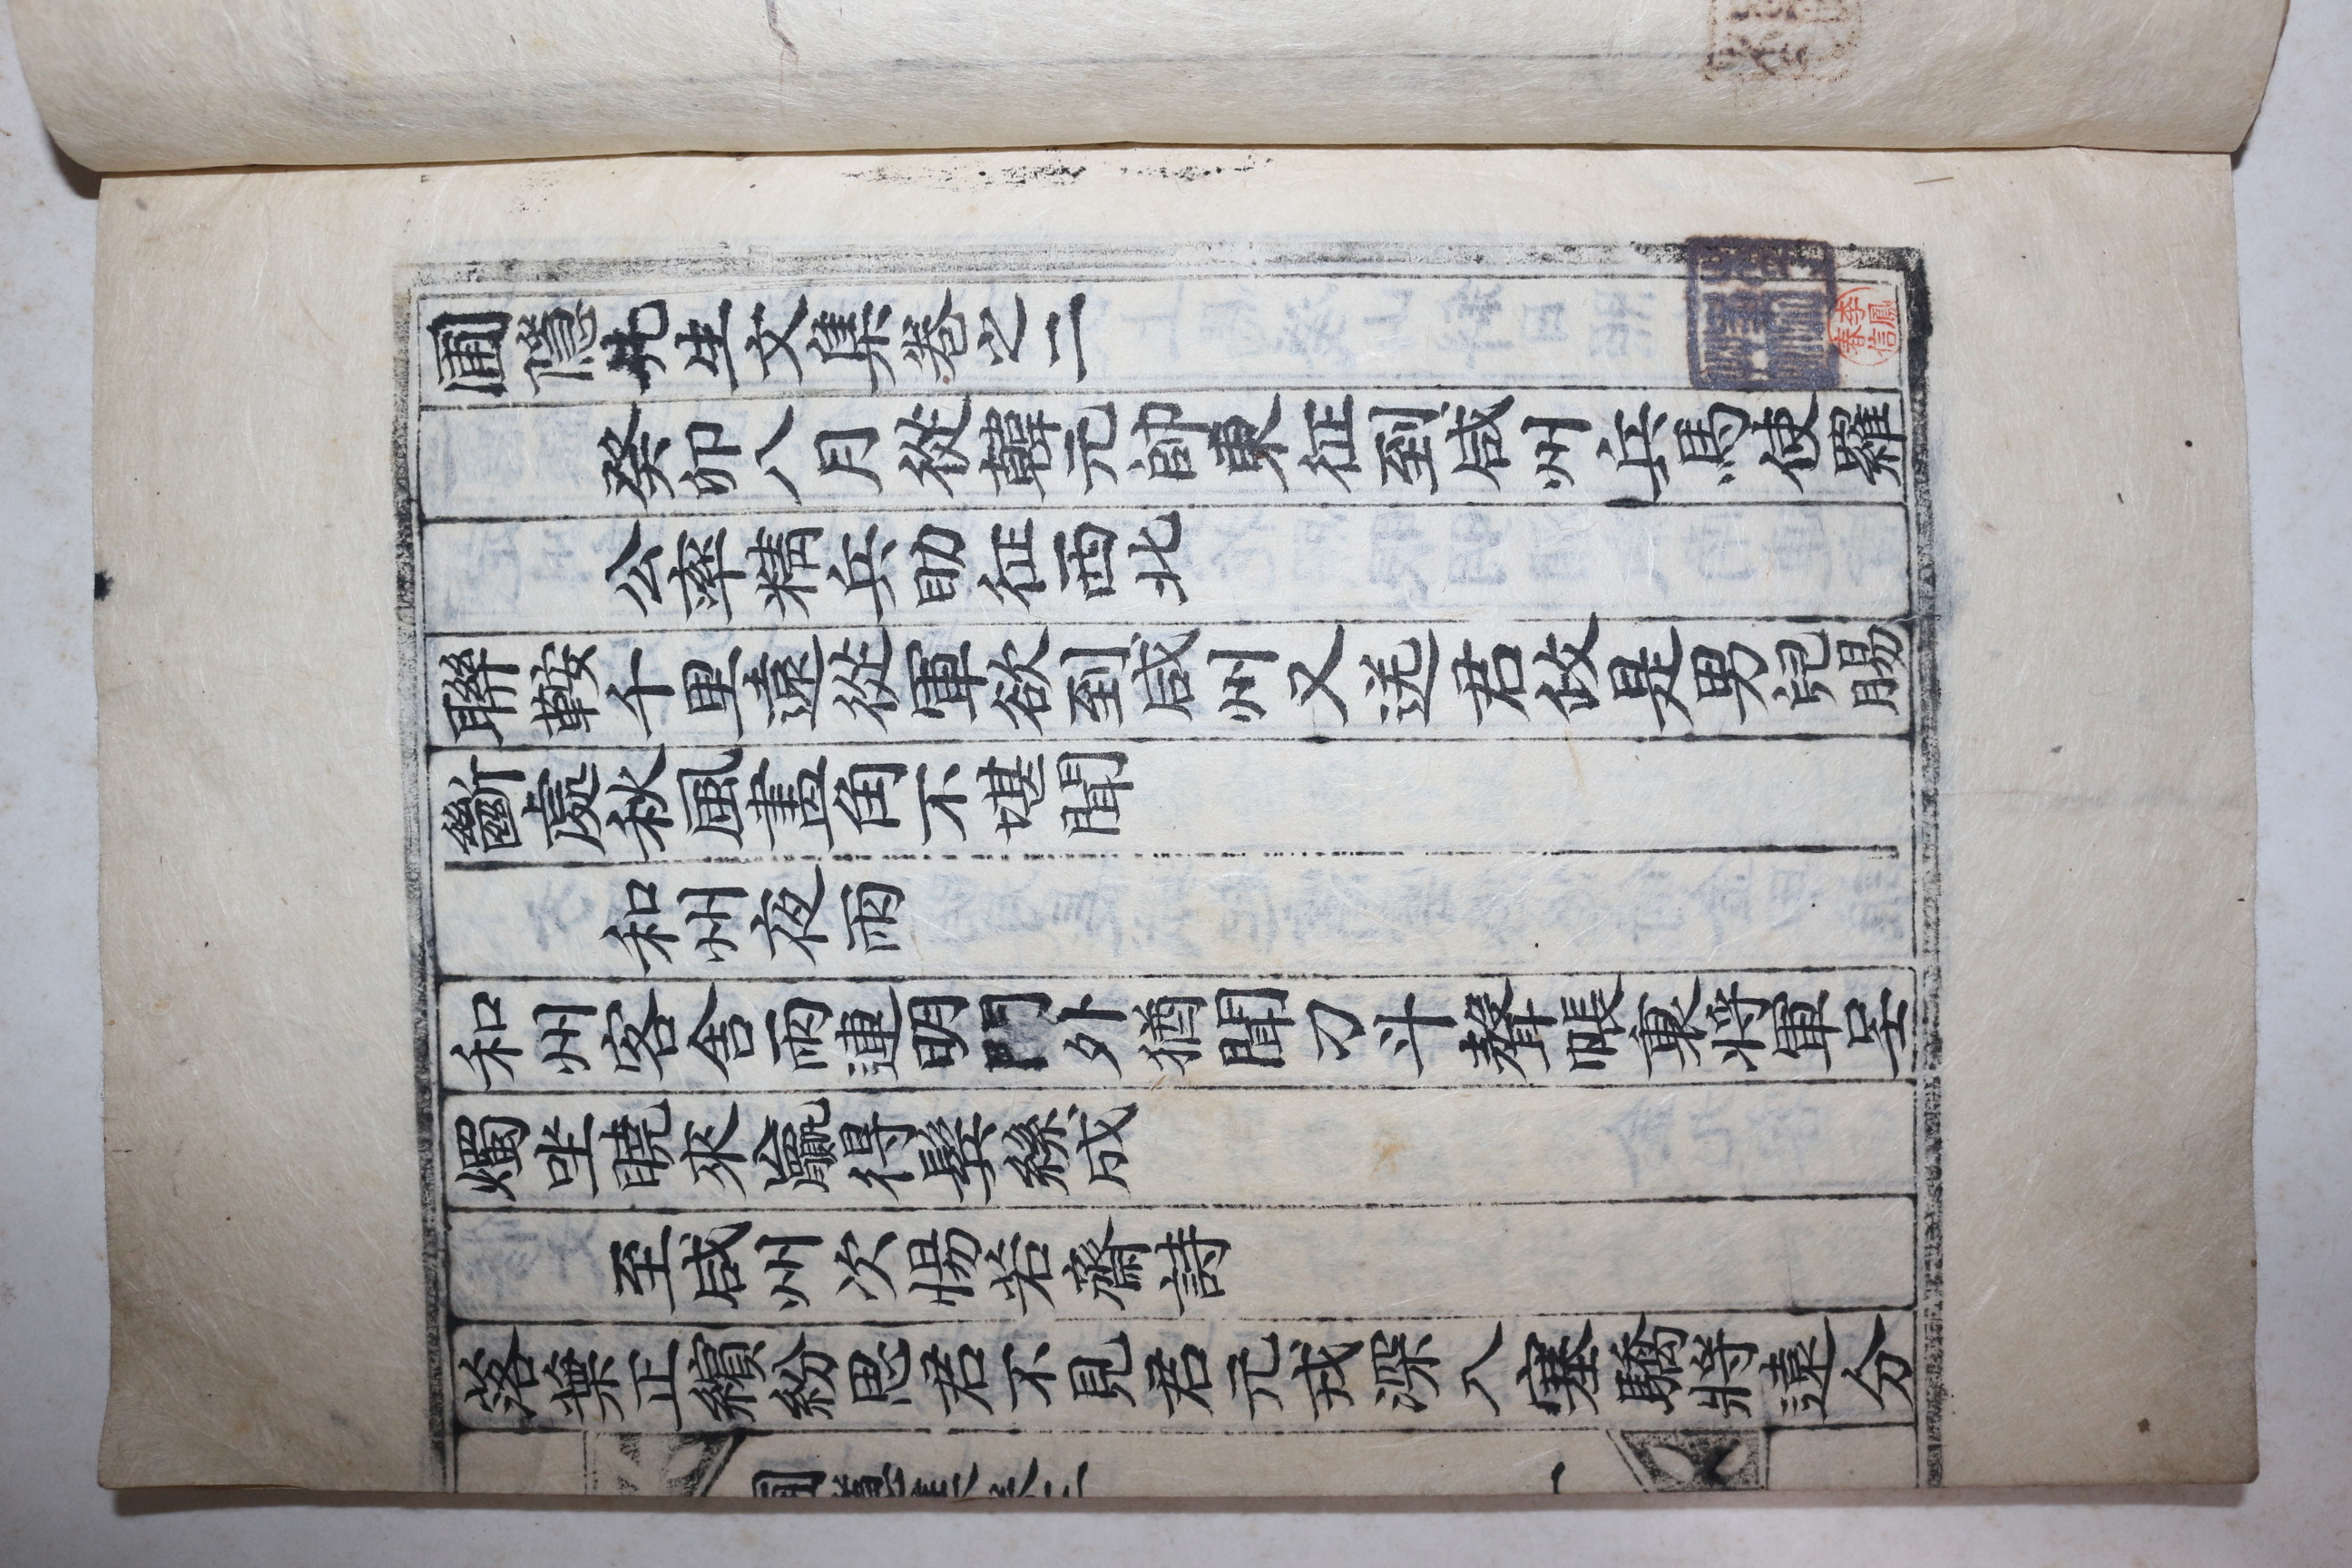 圃隱先生文集卷之二
癸卯八月從韓元帥東征到咸州兵馬使羅
公率精兵助征西北
聯鞍千里遠從軍欲到咸州又送君政是男兒腸
斷處秋風畫角不堪聞
和州夜雨
和州客舍雨連明門外猶聞刁斗聲帳裏將軍呈
燭坐曉來贏得鬂絲成
至咸州次惕若齋詩
落葉正繽紛思君不見君元戎深入塞驕將遠分
李鳳春信